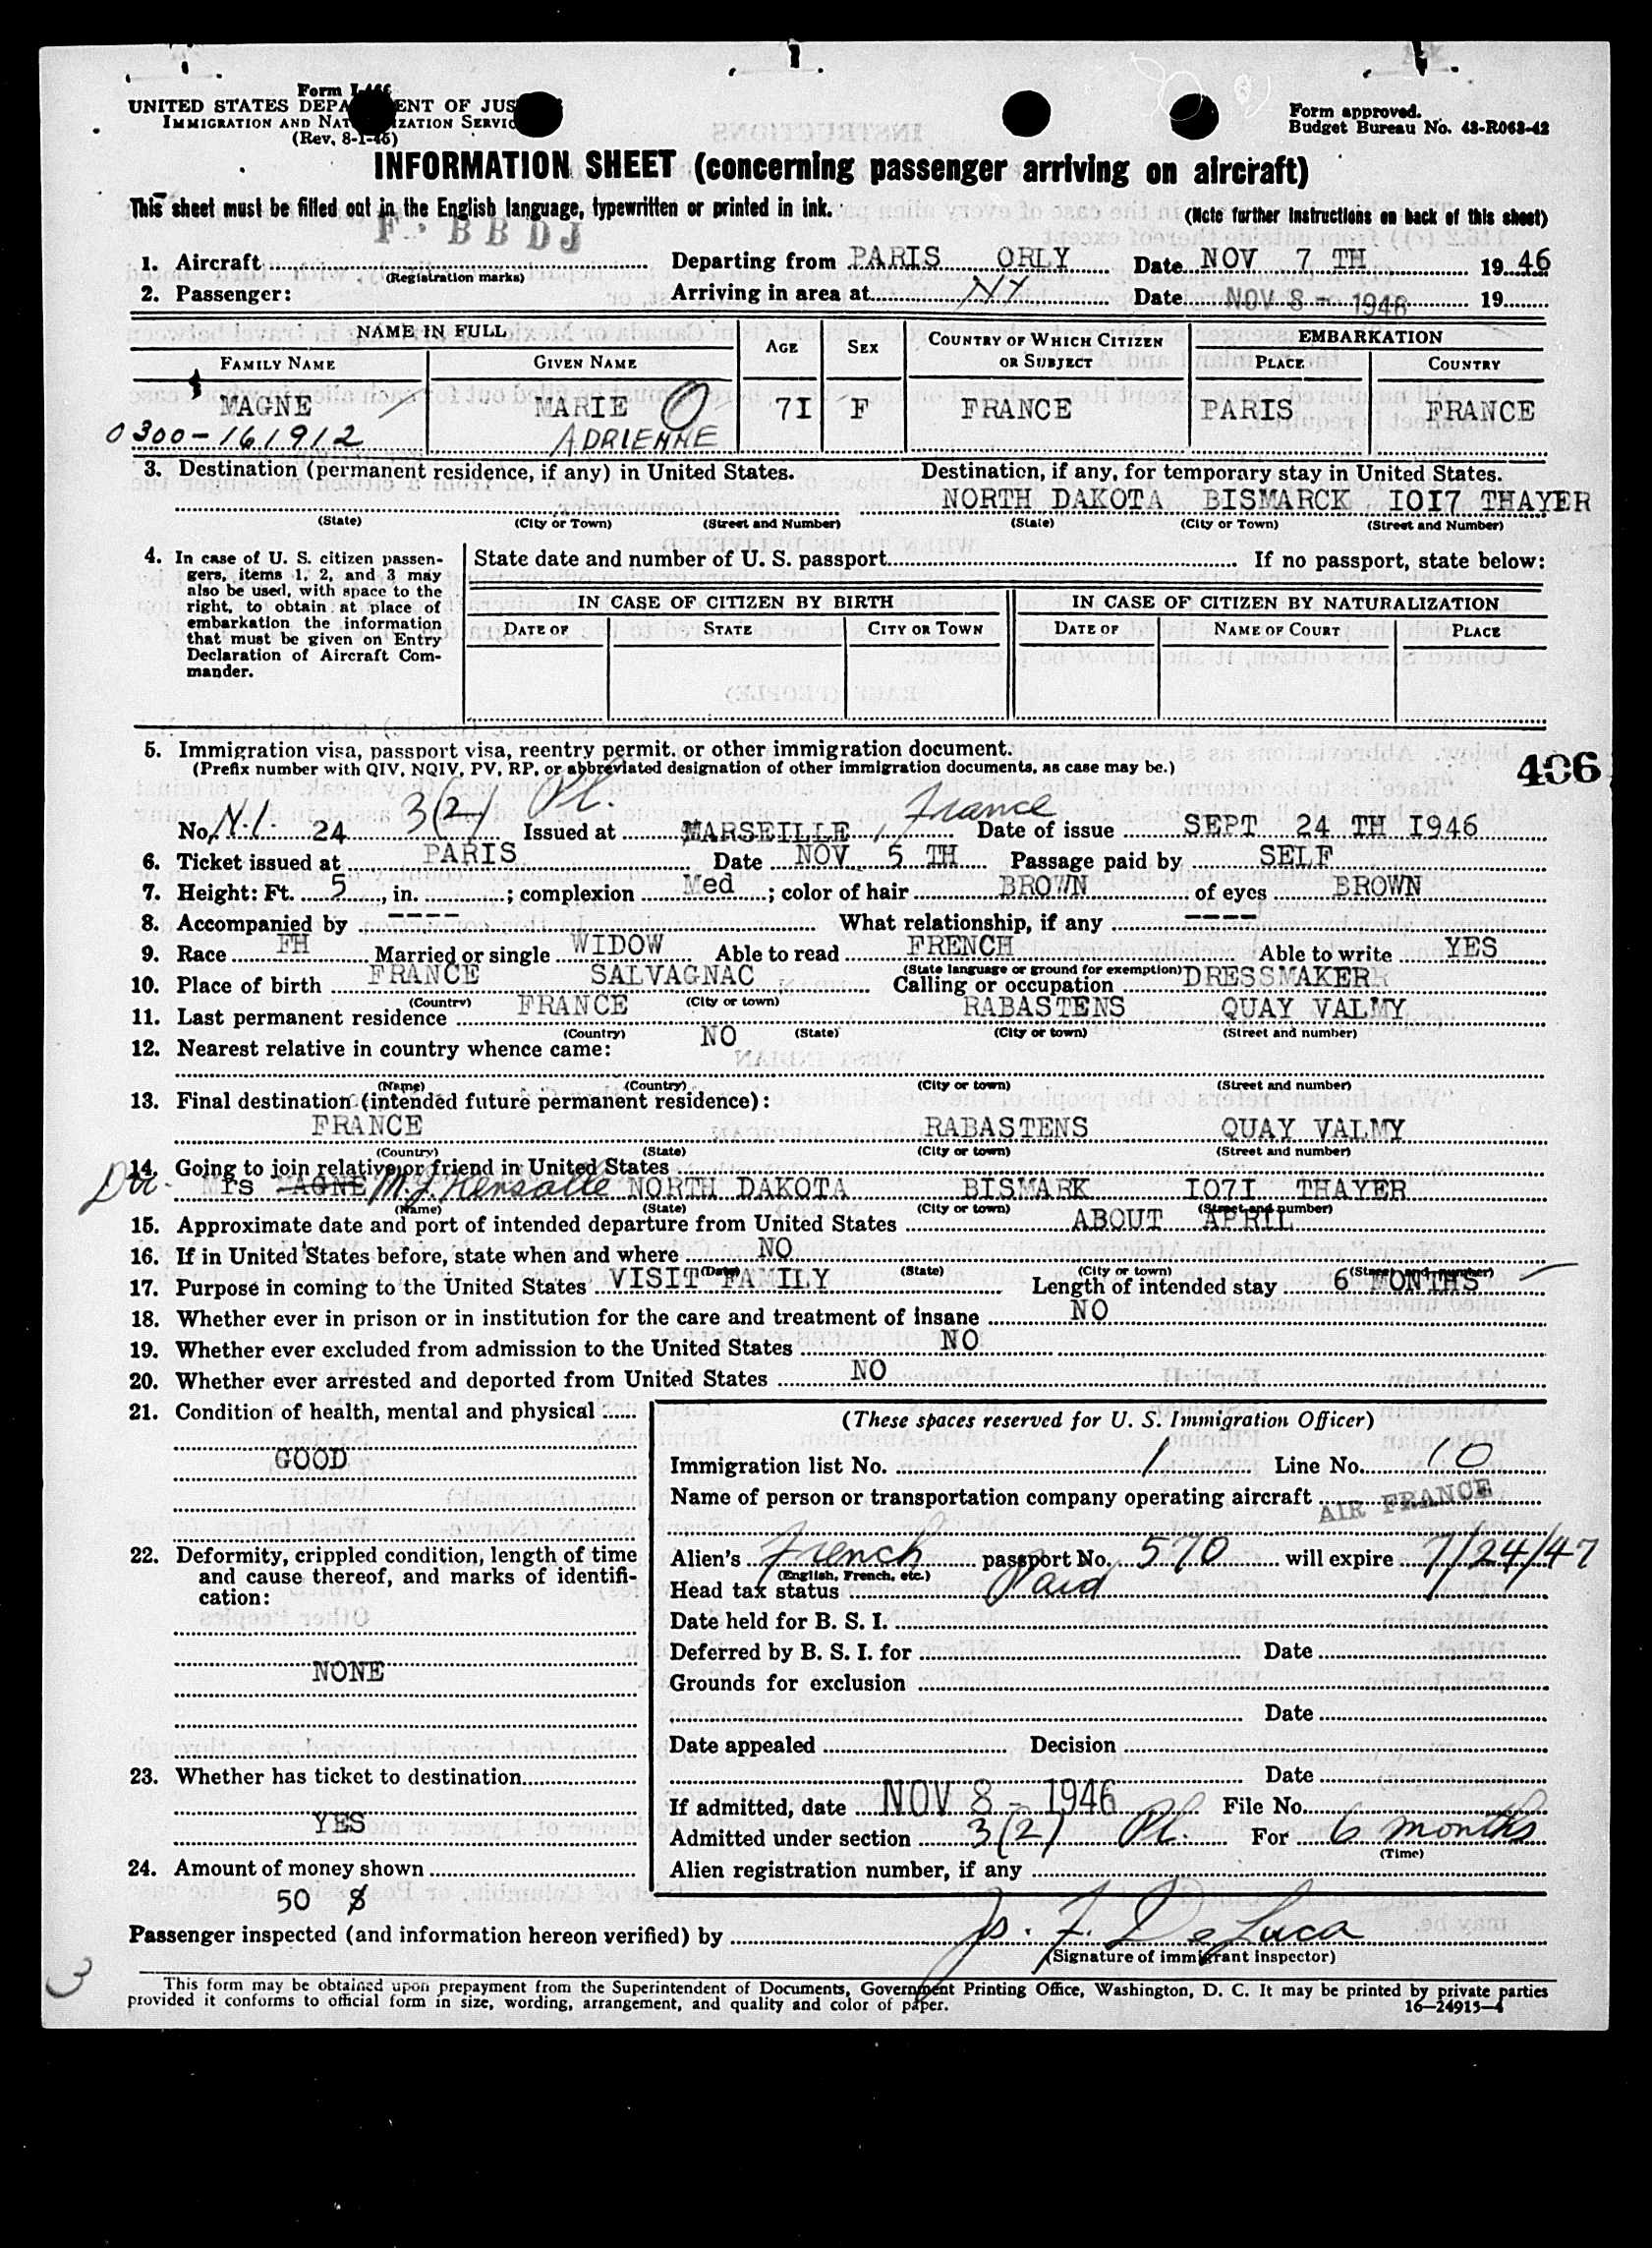 Form I-466
UNITED STATES DEPARTMENT OF JUSTICE
IMMIGRATION AND NATURALIZATION SERVICE
(Rev. 8-1-45)
Form approved.
Budget Bureau No. 43-R063-42
INFORMATION SHEET (concerning passenger arriving on aircraft)
This sheet must be filled out in the English language, typewritten or printed in ink.
(Note further instructions on back of this sheet)
F. BBDJ
1. Aircraft (Registration marks) Departing from PARIS ORLY Date NOV 7 TH 1946
2. Passenger: Arriving in area at NY Date NOV 8 - 1946 19
NAME IN FULL AGE SEX COUNTRY OF WHICH CITIZEN OR SUBJECT EMBARKATION
FAMILY NAME GIVEN NAME PLACE COUNTRY
MAGNE MARIE O 7I F FRANCE PARIS FRANCE
0300-161912 ADRIENNE
3. Destination (permanent residence, if any) in United States. Destination, if any, for temporary stay in United States.
NORTH DAKOTA BISMARCK IOI7 THAYER
(State) (City or Town) (Street and Number) (State) (City or Town) (Street and Number)
4. In case of U. S. citizen passen-
gers, items 1, 2, and 3 may
also be used, with space to the
right, to obtain at place of
embarkation the information
that must be given on Entry
Declaration of Aircraft Com-
mander.
State date and number of U. S. passport If no passport, state below:
IN CASE OF CITIZEN BY BIRTH IN CASE OF CITIZEN BY NATURALIZATION
DATE OF STATE CITY OR TOWN DATE OF NAME OF COURT PLACE
5. Immigration visa, passport visa, reentry permit, or other immigration document.
(Prefix number with QIV, NQIV, PV, RP, or abbreviated designation of other immigration documents, as case may be.)
406
No. N.I. 24 3(2) Pl. Issued at MARSEILLE, France Date of issue SEPT 24 TH I946
6. Ticket issued at PARIS Date NOV 5 TH Passage paid by SELF
7. Height: Ft. 5, in. ; complexion Med; color of hair BROWN of eyes BROWN
8. Accompanied by ---- What relationship, if any ----
9. Race FH Married or single WIDOW Able to read FRENCH Able to write YES
(State language or ground for exemption)
10. Place of birth FRANCE SALVAGNAC Calling or occupation DRESSMAKER
(Country) (City or town)
11. Last permanent residence FRANCE RABASTENS QUAY VALMY
(Country) (State) (City or town) (Street and number)
12. Nearest relative in country whence came: NO
(Name) (Country) (City or town) (Street and number)
13. Final destination (intended future permanent residence):
FRANCE RABASTENS QUAY VALMY
(Country) (State) (City or town) (Street and number)
14. Going to join relative or friend in United States
NORTH DAKOTA BISMARK IO7I THAYER
(Name) (State) (City or town) (Street and number)
15. Approximate date and port of intended departure from United States ABOUT APRIL
16. If in United States before, state when and where NO
(Date) (State) (City or town) (Street and number)
17. Purpose in coming to the United States VISIT FAMILY Length of intended stay 6 MONTHS
18. Whether ever in prison or in institution for the care and treatment of insane NO
19. Whether ever excluded from admission to the United States NO
20. Whether ever arrested and deported from United States NO
21. Condition of health, mental and physical
GOOD
22. Deformity, crippled condition, length of time
and cause thereof, and marks of identifi-
cation:
NONE
23. Whether has ticket to destination
YES
24. Amount of money shown
50 $
(These spaces reserved for U. S. Immigration Officer)
Immigration list No. 1 Line No. 10
Name of person or transportation company operating aircraft AIR FRANCE
Alien's French passport No. 570 will expire 7/24/47
(English, French, etc.)
Head tax status Paid
Date held for B. S. I.
Deferred by B. S. I. for Date
Grounds for exclusion
Date
Date appealed Decision
Date
If admitted, date NOV 8 - 1946 File No.
Admitted under section 3(2) Pl. For 6 months
(Time)
Alien registration number, if any
Passenger inspected (and information hereon verified) by Js. F. DeLuca
(Signature of immigrant inspector)
3
This form may be obtained upon prepayment from the Superintendent of Documents, Government Printing Office, Washington, D. C. It may be printed by private parties
provided it conforms to official form in size, wording, arrangement, and quality and color of paper.
16—24915-4